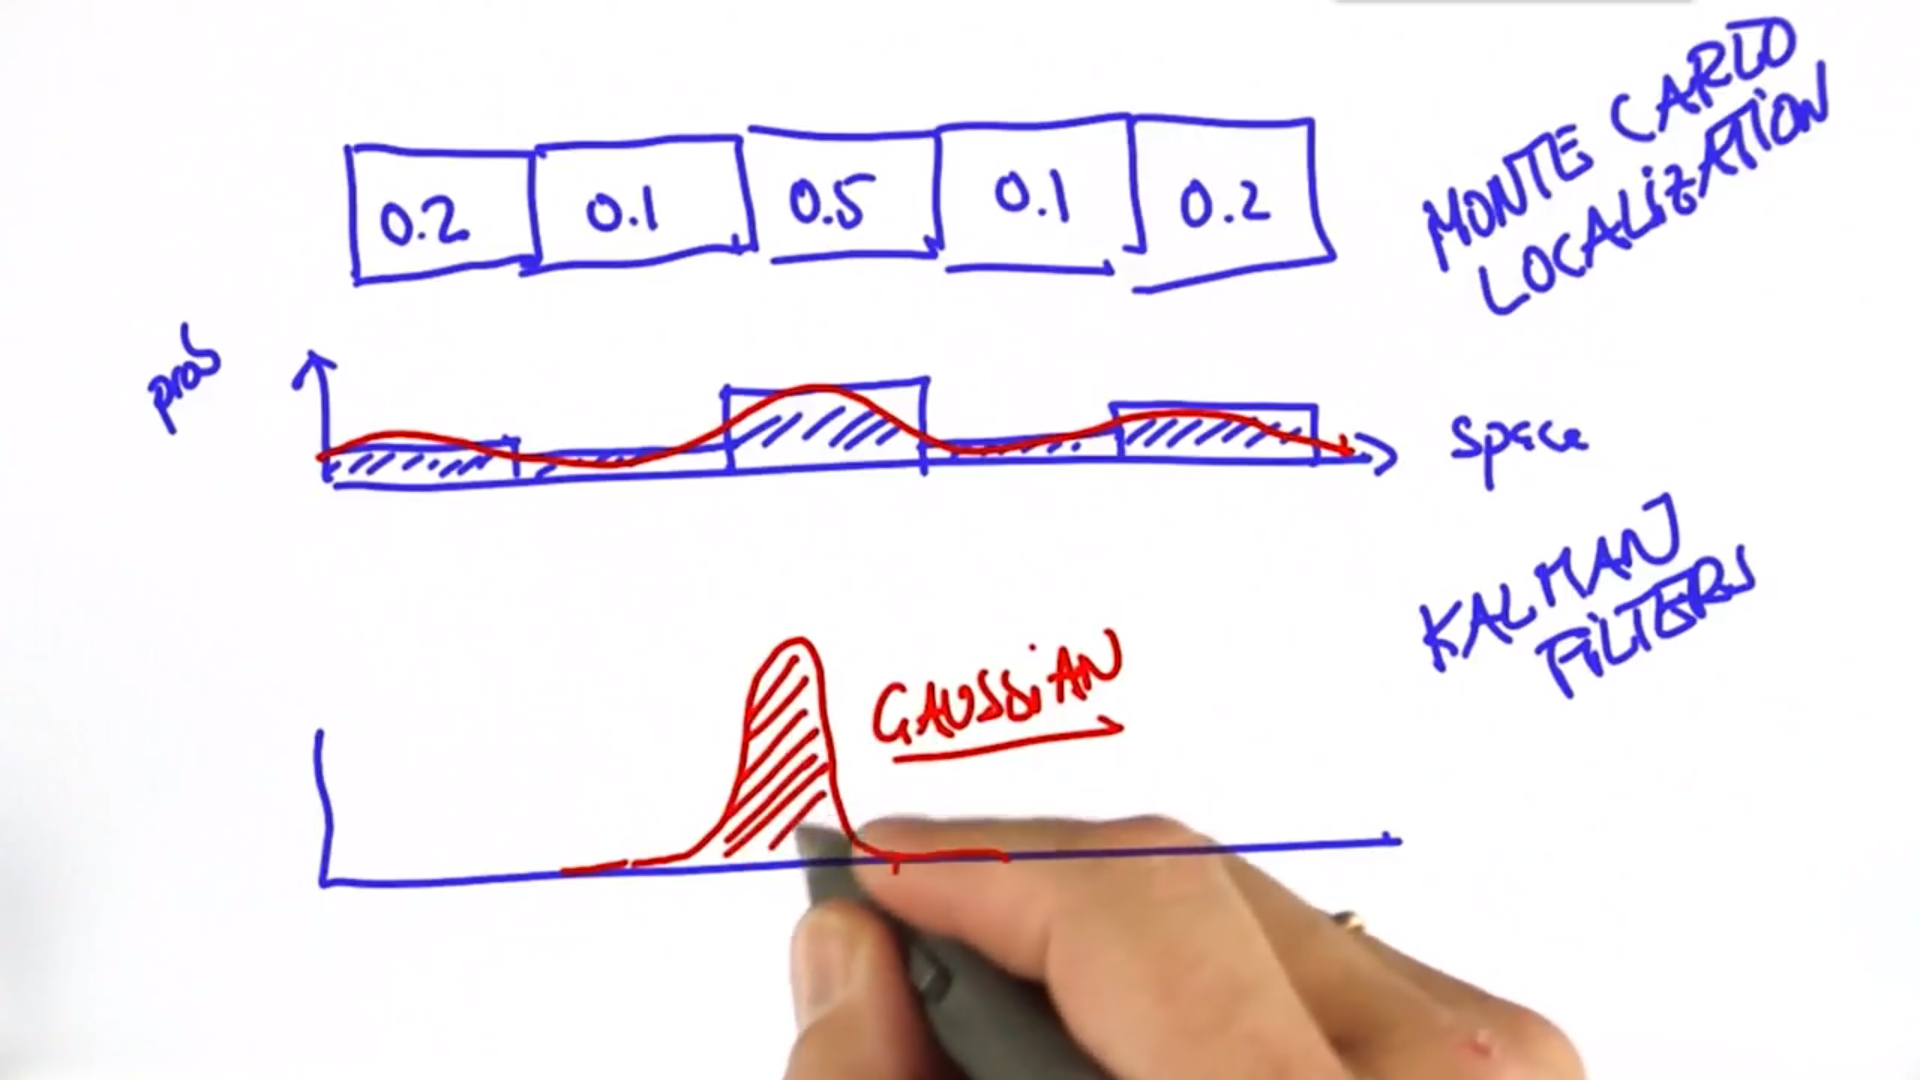 0.2 0.1 0.5 0.1 0.2
MONTE CARLO
LOCALIZATION
prob
space
KALMAN
FILTERS
GAUSSIAN